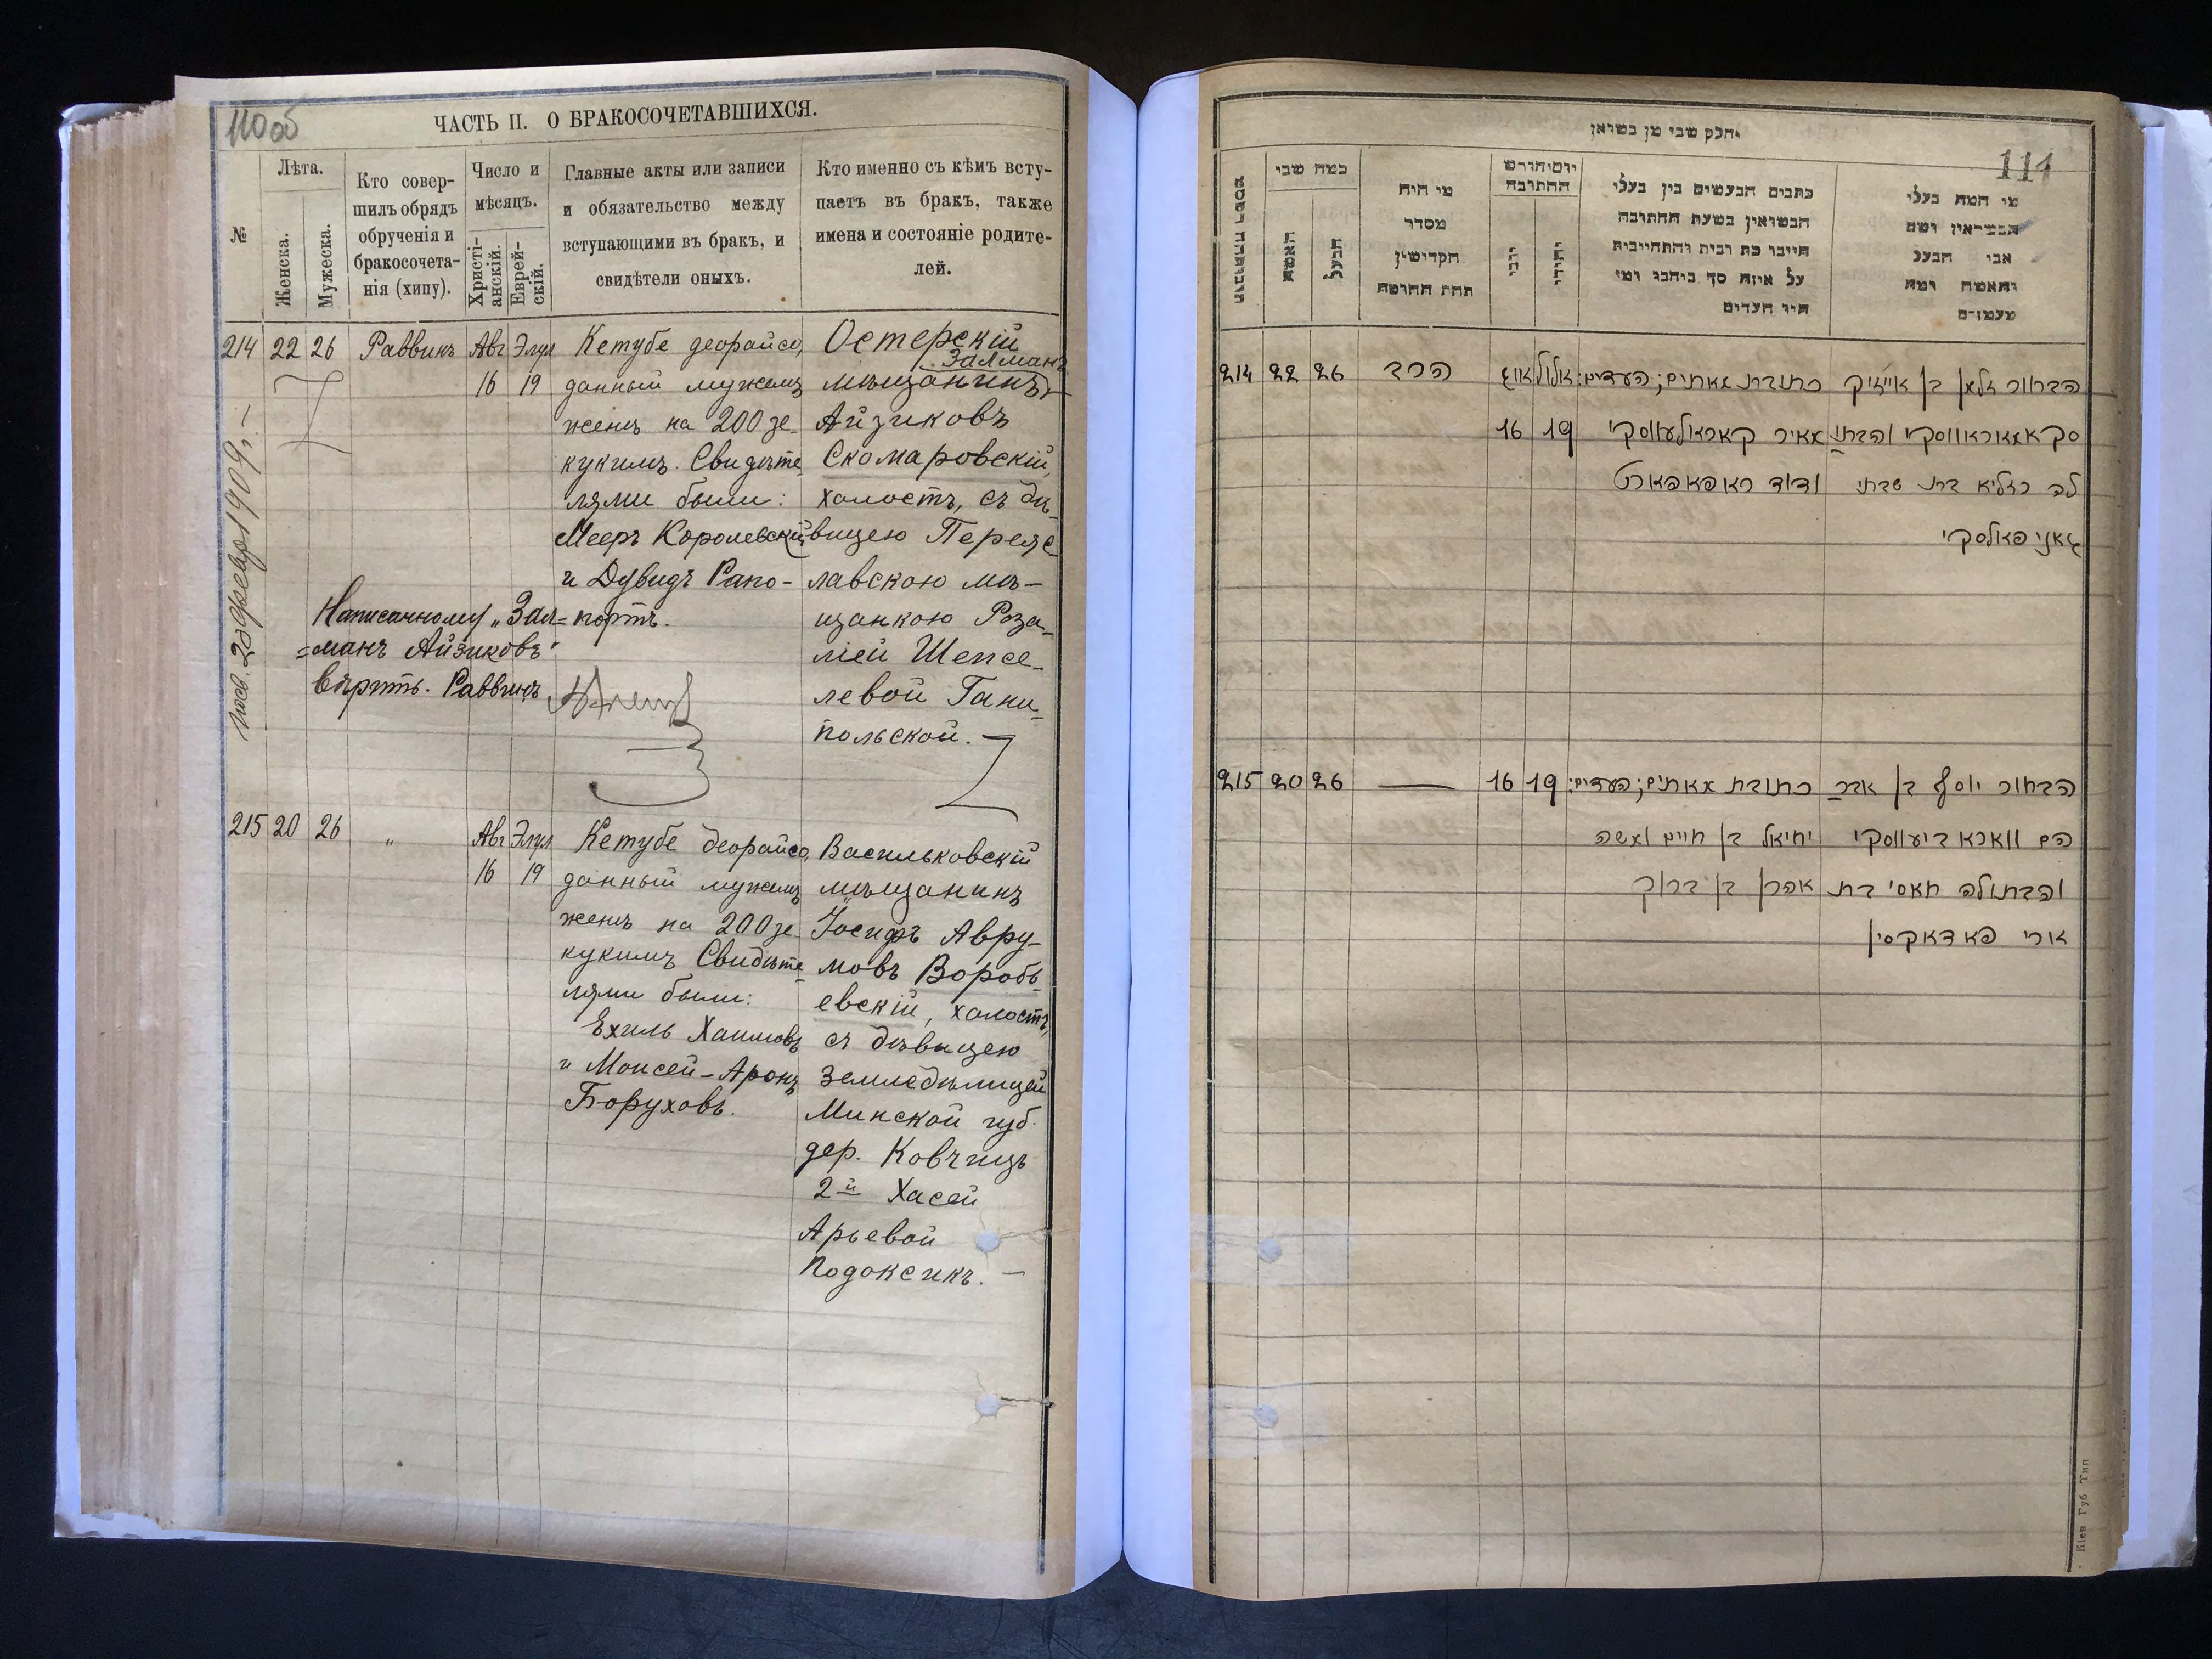 110 об
ЧАСТЬ II. О БРАКОСОЧЕТАВШИХСЯ.
№
Лѣта.
Женска.
Мужеска.
Кто совер-
шилъ обрядъ
обрученія и
бракосочета-
нія (хипу).
Число и
мѣсяцъ.
Христі-
анскій.
Еврей-
скій.
Главные акты или записи
и обязательство между
вступающими въ бракъ, и
свидѣтели оныхъ.
Кто именно съ кѣмъ всту-
паетъ въ бракъ, также
имена и состояніе родите-
лей.
214 22 26 Раввинъ Авг Элул
16 19
Кетубе деорайсо,
данный мужемъ
женѣ на 200 зе-
кукимъ. Свидѣте-
лями были:
Мееръ Королевскій
и Дувидъ Рапо-
портъ.
Остерскій
Залманъ
мѣщанинъ
Айзиковъ
Скомаровскій,
холостъ, съ дѣ-
вицею Переяс-
лавскою мѣ-
щанкою Роза-
ліей Шепсе-
левой Гани-
польской.
Написанному „Зал=
=манъ Айзиковъ"
вѣрить. Раввинъ
28 февр 1909 г.
215 20 26 „ Авг Элул
16 19
Кетубе деорайсо,
данный мужемъ
женѣ на 200 зе-
кукимъ Свидѣте-
лями были:
Ехиль Хаимовъ
и Моисей-Аронъ
Боруховъ.
Васильковскій
мѣщанинъ
Іосифъ Авру-
мовъ Вороб-
евскій, холостъ,
съ дѣвицею
земледѣлицей
Минской губ.
дер. Ковчицъ
2й Хасей
Арьевой
Подоксикъ.
111
וחלק שני מן נשואין
כמה שני
האשה
הבעל
מי היה
מסדר
הקדישין
תחת החופה
יום וחודש
החתונה
יוני
יהודי
כתבים הנעשים בין בעלי
הנשואין בשעת החתונה
חייבו כת ובית והתחייבות
על איזה סך ביחבו ומי
היו העדים
מי המה בעלי
הנשואין ושם
אבי הבעל
והאשה ומה
מעמדם
214 22 26 הרב אלול אווג
16 19
כתובת מאתים; העדים:
מאיר קאראלעווסקי
ודוד ראפאפארט
הבחור זלמן בן אייזיק
סקאמאראווסקי והבתו
לה רזליא בת שבתי
גאניפאלסקי
215 20 26 — 16 19
כתובת מאתים; העדים:
יחיאל בן חיים ומשה
אהרן בן ברוך
הבחור יוסף בן אבר
הם וואראביעווסקי
והבתולה חאסי בת
ארי פאדאקסין
Кіев Губ Тип